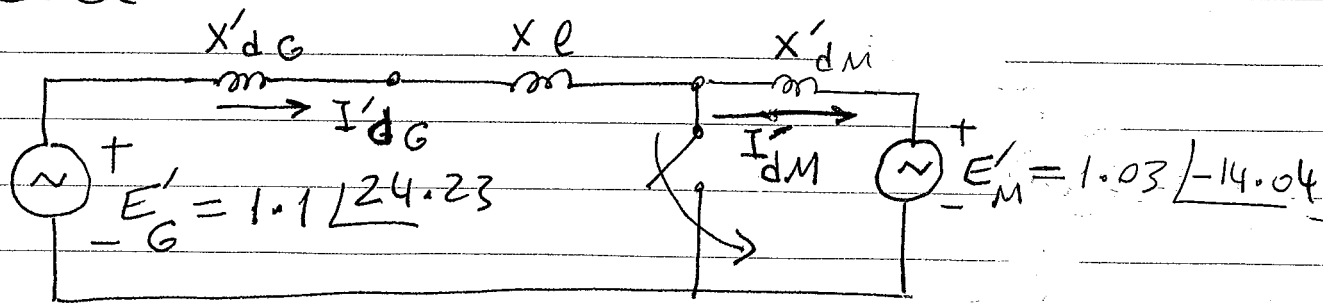 X'dG Xl X'dM
I'dG I'dM
+ E'G = 1.1 ∠24.23 -
+ E'M = 1.03 ∠-14.04 -